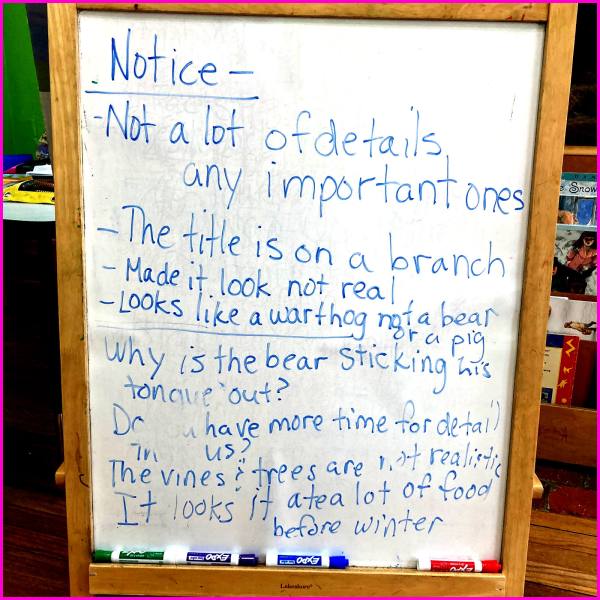 Notice -
-Not a lot of details
any important ones
-The title is on a branch
- Made it look not real
-Looks like a warthog not a bear
or a pig
Why is the bear sticking his
tongue out?
have more time for detail
us?
The vines & trees are not realistic
It looks it atea lot of food
before winter
EXPO
EXPO
Lakeshore
Snow